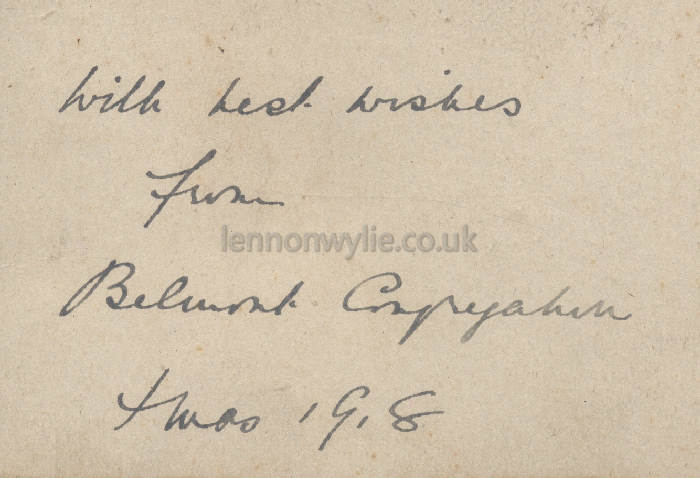 With best wishes
from
lennonwylie.co.uk
Belmont Congregation
Xmas 1918